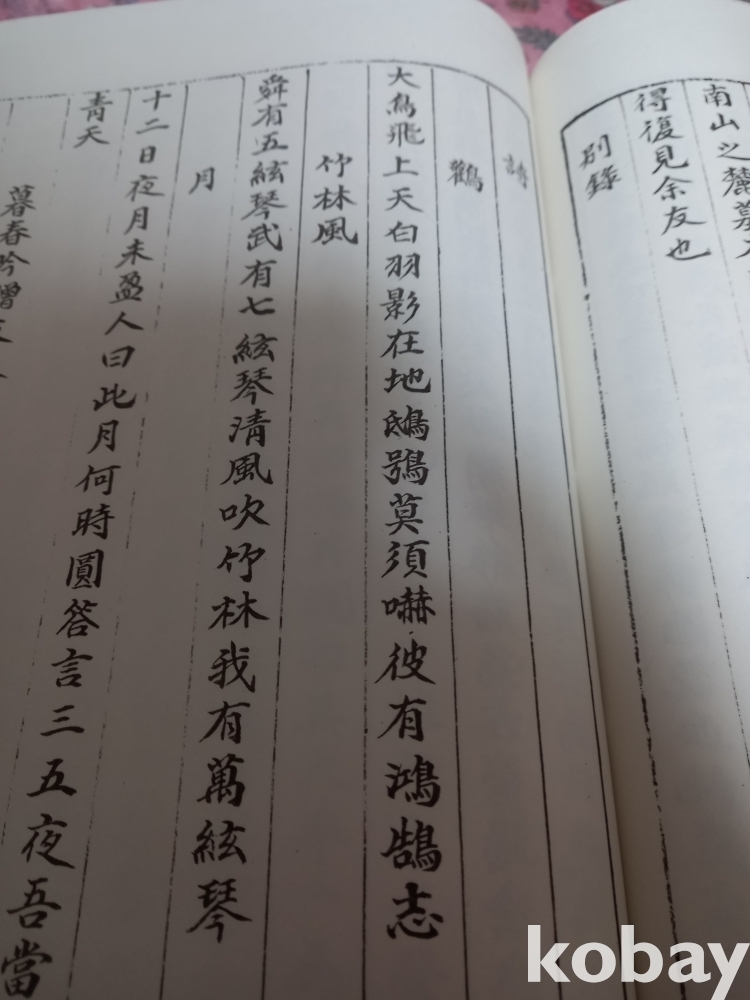 南山之麓墓
得復見余友也
別錄
詩
鸛
大鳥飛上天白羽影在地鴟鴞莫須嚇彼有鴻鵠志
竹林風
舜有五絃琴武有七絃琴淸風吹竹林我有萬絃琴
月
十二日夜月未盈人曰此月何時圓答言三五夜吾當
靑天
暮春吟
kobay